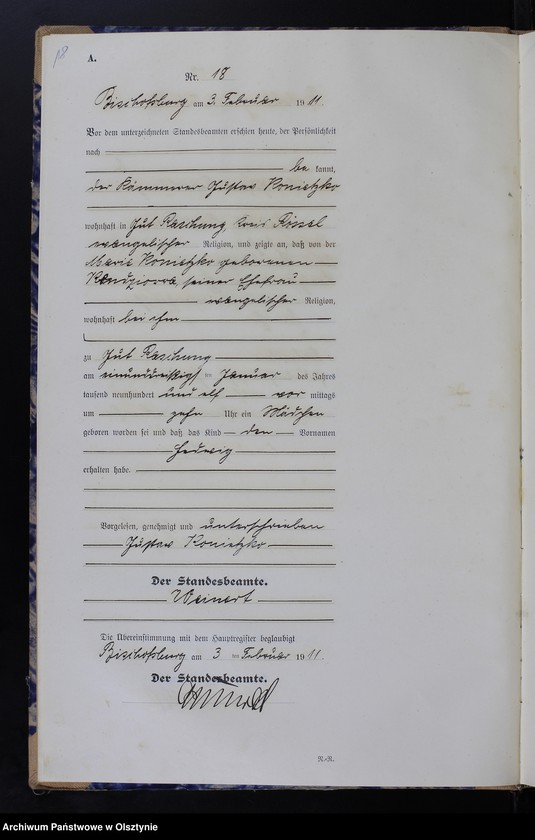 18
A.
Nr. 18
Bischofsburg am 3. Februar 1911.
Vor dem unterzeichneten Standesbeamten erschien heute, der Persönlichkeit
nach
be kannt,
der Kämmerer Gustav Konietzko
wohnhaft in Gut Raschung Kreis Rössel
evangelischer Religion, und zeigte an, daß von der
Marie Konietzko geborenen
Kendziorra, seiner Ehefrau
evangelischer Religion,
wohnhaft bei ihm
zu Gut Raschung
am einunddreißigsten Januar des Jahres
tausend neunhundert und elf vor mittags
um zehn Uhr ein Mädchen
geboren worden sei und daß das Kind den Vornamen
Hedwig
erhalten habe.
Vorgelesen, genehmigt und unterschrieben
Gustav Konietzko
Der Standesbeamte.
Weinert
Die Übereinstimmung mit dem Hauptregister beglaubigt
Bischofsburg am 3 ten Februar 1911.
Der Standesbeamte.
R.-R.
Archiwum Państwowe w Olsztynie